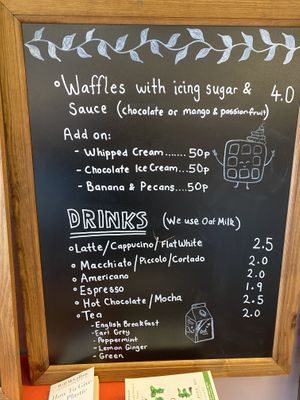 Waffles with icing sugar & 4.0
Sauce (chocolate or mango & passionfruit)
Add on:
- Whipped Cream.......50p
- Chocolate Ice Cream....50p
- Banana & Pecans.50p
DRINKS (We use Oat Milk)
Latte/Cappucino/Flat White 2.5
Macchiato/Piccolo/Cortado 2.0
Americano 2.0
Espresso 1.9
Hot Chocolate/Mocha 2.5
Tea 2.0
- English Breakfast
- Earl Grey
- Peppermint
- Lemon Ginger
- Green
How To Give
Plastic